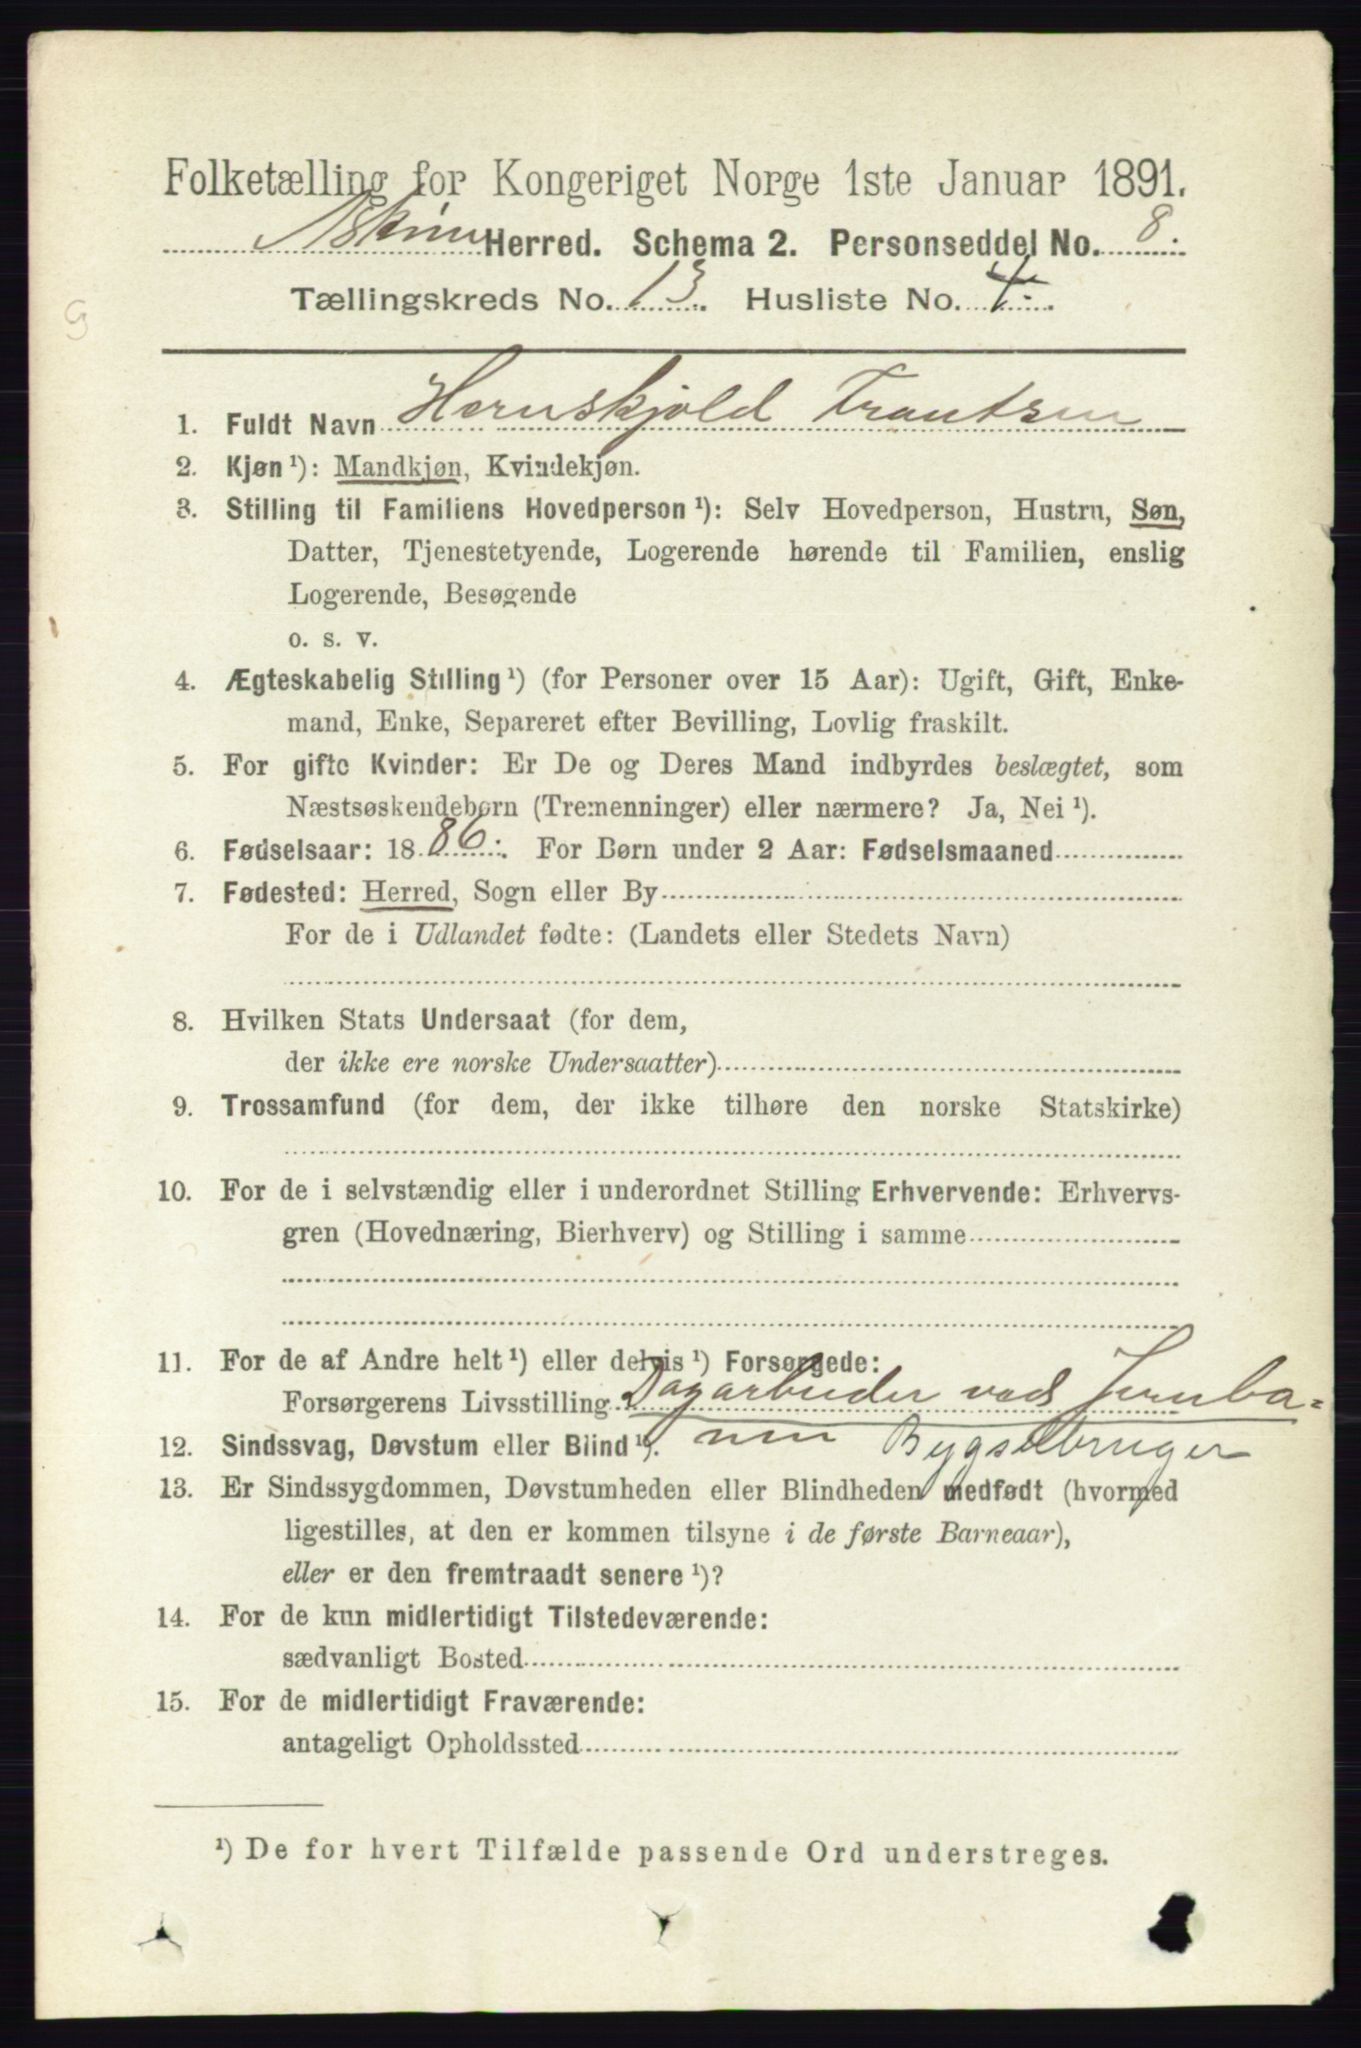 Folketælling for Kongeriget Norge 1ste Januar 1891.
Askim Herred. Schema 2. Personseddel No. 8.
Tællingskreds No. 13. Husliste No. 4.
1. Fuldt Navn Hernskjold Frantsen
2. Kjøn ¹): Mandkjøn, Kvindekjøn.
3. Stilling til Familiens Hovedperson ¹): Selv Hovedperson, Hustru, Søn,
Datter, Tjenestetyende, Logerende hørende til Familien, enslig
Logerende, Besøgende
o. s. v.
4. Ægteskabelig Stilling ¹) (for Personer over 15 Aar): Ugift, Gift, Enke-
mand, Enke, Separeret efter Bevilling, Lovlig fraskilt.
5. For gifte Kvinder: Er De og Deres Mand indbyrdes beslægtet, som
Næstsøskendebørn (Tremenninger) eller nærmere? Ja, Nei ¹).
6. Fødselsaar: 1886. For Børn under 2 Aar: Fødselsmaaned
7. Fødested: Herred, Sogn eller By
For de i Udlandet fødte: (Landets eller Stedets Navn)
8. Hvilken Stats Undersaat (for dem,
der ikke ere norske Undersaatter)
9. Trossamfund (for dem, der ikke tilhøre den norske Statskirke)
10. For de i selvstændig eller i underordnet Stilling Erhvervende: Erhvervs-
gren (Hovednæring, Bierhverv) og Stilling i samme
11. For de af Andre helt ¹) eller delvis ¹) Forsørgede:
Forsørgerens Livsstilling Dagarbeider ved Jernba=
12. Sindssvag, Døvstum eller Blind ¹). nen Bygselbruger
13. Er Sindssygdommen, Døvstumheden eller Blindheden medfødt (hvormed
ligestilles, at den er kommen tilsyne i de første Barneaar),
eller er den fremtraadt senere ¹)?
14. For de kun midlertidigt Tilstedeværende:
sædvanligt Bosted
15. For de midlertidigt Fraværende:
antageligt Opholdssted
¹) De for hvert Tilfælde passende Ord understreges.